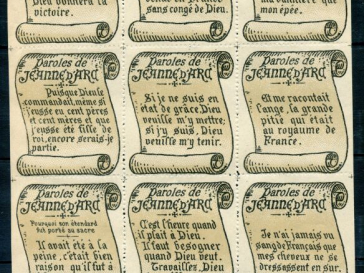 Dieu donnera la
victoire.
sans congé de Dieu.
mon épée.
Paroles de
JEANNE D'ARC
Puisque Dieu le
commandait, même si
j'eusse eu cent pères
et cent mères et que
j'eusse été fille de
roi, encore serais-je
partie.
Paroles de
JEANNE D'ARC
Si je ne suis en
état de grâce, Dieu
veuille m'y mettre;
si j'y suis, Dieu
veuille m'y tenir.
Paroles de
JEANNE D'ARC
Il me racontait
l'ange, la grande
pitié qui était
au royaume de
France.
Paroles de
JEANNE D'ARC
Pourquoi son étendard
fut porté au sacre
Il avait été à la
peine, c'était bien
raison qu'il fut à
Paroles de
JEANNE D'ARC
C'est l'heure quand
il plaît à Dieu.
Il faut besogner
quand Dieu veut.
Travaillez, Dieu
Paroles de
JEANNE D'ARC
Je n'ai jamais vu
sang de Français que
mes cheveux ne se
dressassent sur